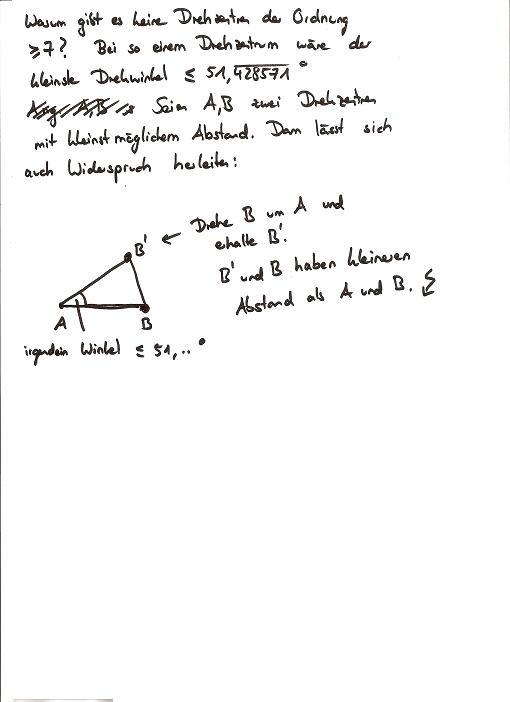 Warum gibt es keine Drehzentren der Ordnung
≥7? Bei so einem Drehzentrum wäre der
kleinste Drehwinkel ≤ 51,428571°
Seien A,B zwei Drehzentren
mit kleinstmöglichem Abstand. Dann lässt sich
auch Widerspruch herleiten:
B' ← Drehe B um A und
erhalte B'.
B' und B haben kleineren
Abstand als A und B.
A B
irgendein Winkel ≤ 51,..°